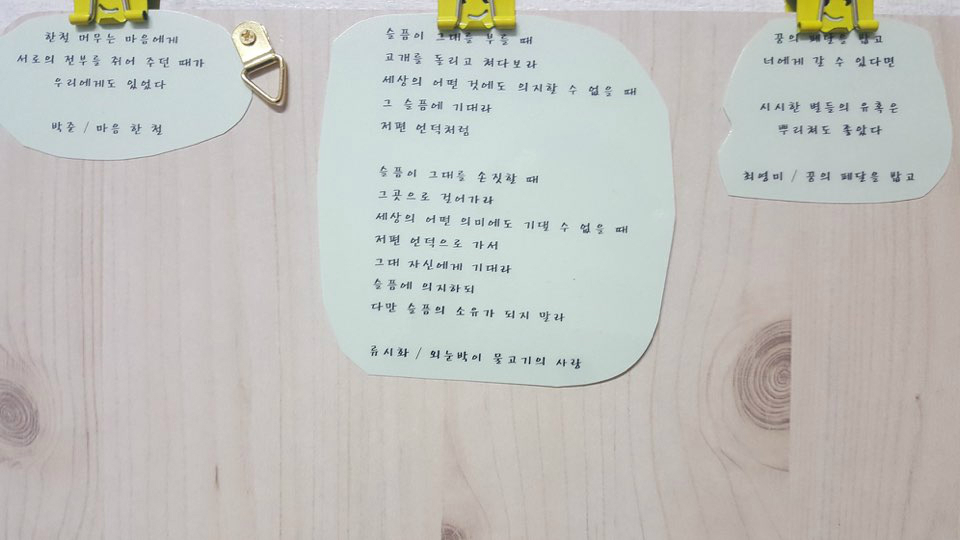 한철 머무는 마음에게
서로의 전부를 쥐어 주던 때가
우리에게도 있었다
박준 / 마음 한 철
슬픔이 그대를 부를 때
고개를 돌리고 쳐다보라
세상의 어떤 것에도 의지할 수 없을 때
그 슬픔에 기대라
저편 언덕처럼
슬픔이 그대를 손짓할 때
그곳으로 걸어가라
세상의 어떤 의미에도 기댈 수 없을 때
저편 언덕으로 가서
그대 자신에게 기대라
슬픔에 의지하되
다만 슬픔의 소유가 되지 말라
류시화 / 외눈박이 물고기의 사랑
꿈의 페달을 밟고
너에게 갈 수 있다면
시시한 별들의 유혹은
뿌리쳐도 좋았다
최영미 / 꿈의 페달을 밟고